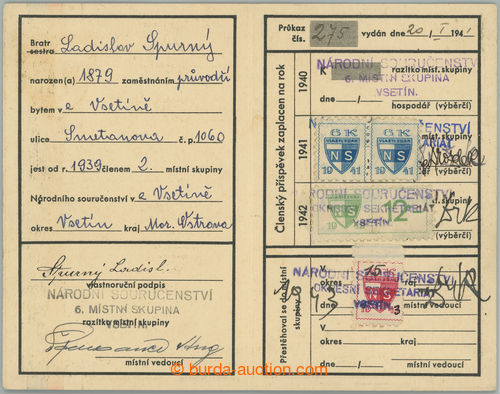 Bratr
sestra Ladislav Spurný
narozen(a) 1879 zaměstnáním průvodčí
bytem v e Vsetíně
ulice Smetanova č. p. 1060
jest od r. 1939 členem 2. místní skupiny
Národního souručenství v e Vsetíně
okres Vsetín kraj Mor. Ostrava
Spurný Ladisl.
vlastnoruční podpis
NÁRODNÍ SOURUČENSTVÍ
6. MÍSTNÍ SKUPINA
razítko místní skupiny
VSETÍN
místní vedoucí
Průkaz
čís. 275 vydán dne 20/I 1941
Členský příspěvek zaplacen na rok
1940
NÁRODNÍ SOURUČENSTVÍ
razítko míst. skupiny
6. MÍSTNÍ SKUPINA
VSETÍN.
dne / hospodář (výběrčí)
1941
6 K 6 K
VLASTI ZDAR
NS NS
19 41 19 41
míst. skupiny
(výběrčí)
1942
NÁRODNÍ SOURUČENSTVÍ
12
OKRESNÍ SEKRETARIÁT
VSETÍN
19
(výběrčí)
Přestěhoval se do místní
skupiny
v
okres kraj
NÁRODNÍ SOURUČENSTVÍ
OKRESNÍ SEKRETARIÁT
VSETÍN
NS
3
místní vedoucí
v
okres kraj
dne
místní vedoucí
© burda-auction.com